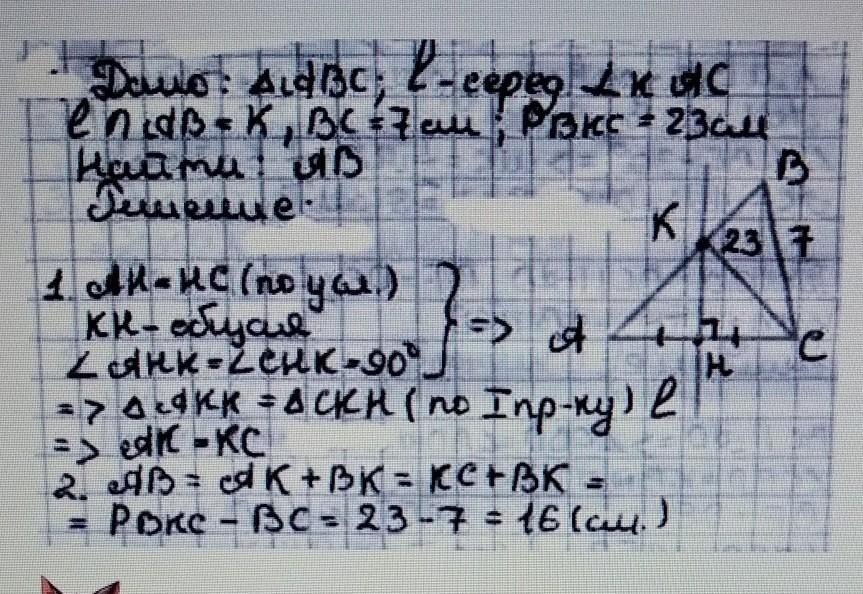 Дано: ΔABC; l-серед ⊥ к AC
l ∩ AB = K, BC = 7 см; PBKC = 23 см
Найти: AB
Решение:
1. AH = HC (по усл.)
KH - общая
∠AHK = ∠CHK = 90°
=>
=> ΔAKH = ΔCKH (по I пр-ку)
=> AK = KC
2. AB = AK + BK = KC + BK =
= PBKC - BC = 23 - 7 = 16 (см.)
B
K
23
7
A
H
C
l